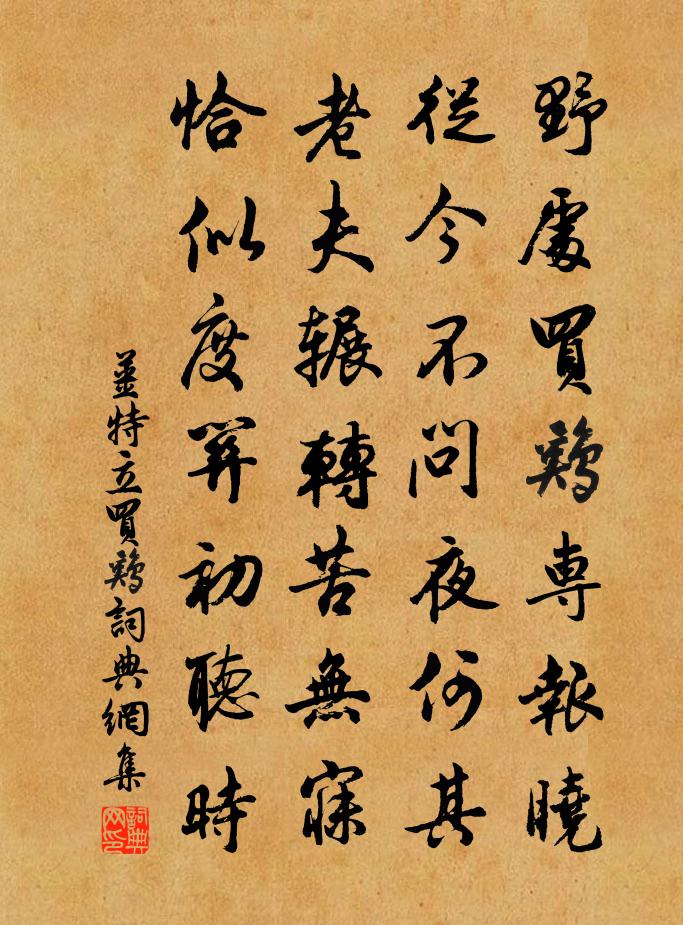 野處買鷄専報曉
從今不問夜何其
老夫輾轉苦無寐
恰似度關初聽時
姜特立買鷄詞典網集
詞典网印